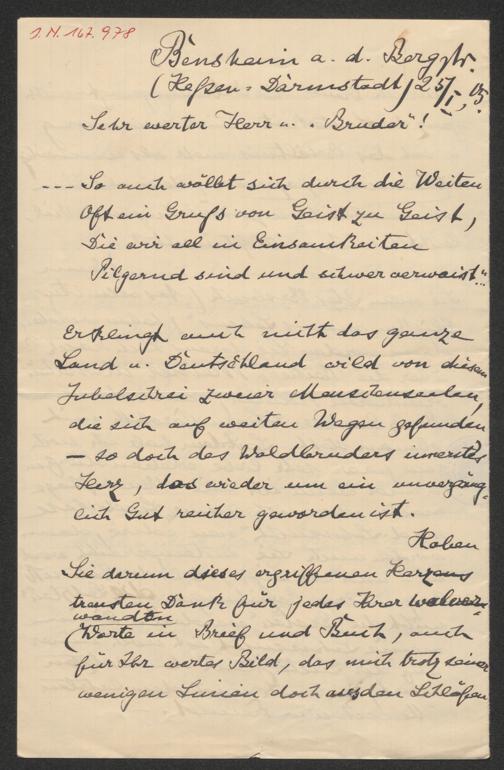 J.N. 167.978
Bensheim a. d. Bergstr.
(Heßen-Darmstadt) 25/I, 05.
Sehr werter Herr u. "Bruder"!
--- So auch wölbet sich durch die Weiten
Oft ein Gruß von Geist zu Geist,
Die wir all in Einsamkeiten
Pilgernd sind und schwer verwaist."
Erklingt auch nicht das ganze
Land u. Deutschland wild von diesem
Jubelschrei zweier Menschenseelen,
die sich auf weiten Wegen gefunden
— so doch des Waldbruders innerstes
Herz, das wieder um ein unvergäng-
lich Gut reicher geworden ist.
Haben
Sie darum dieses ergriffenen Herzens
treusten Dank für jedes Ihrer
wandten
Worte in Brief und Buch, auch
für Ihr wertes Bild, das mich trotz seiner
wenigen Linien doch aus den Schläfen